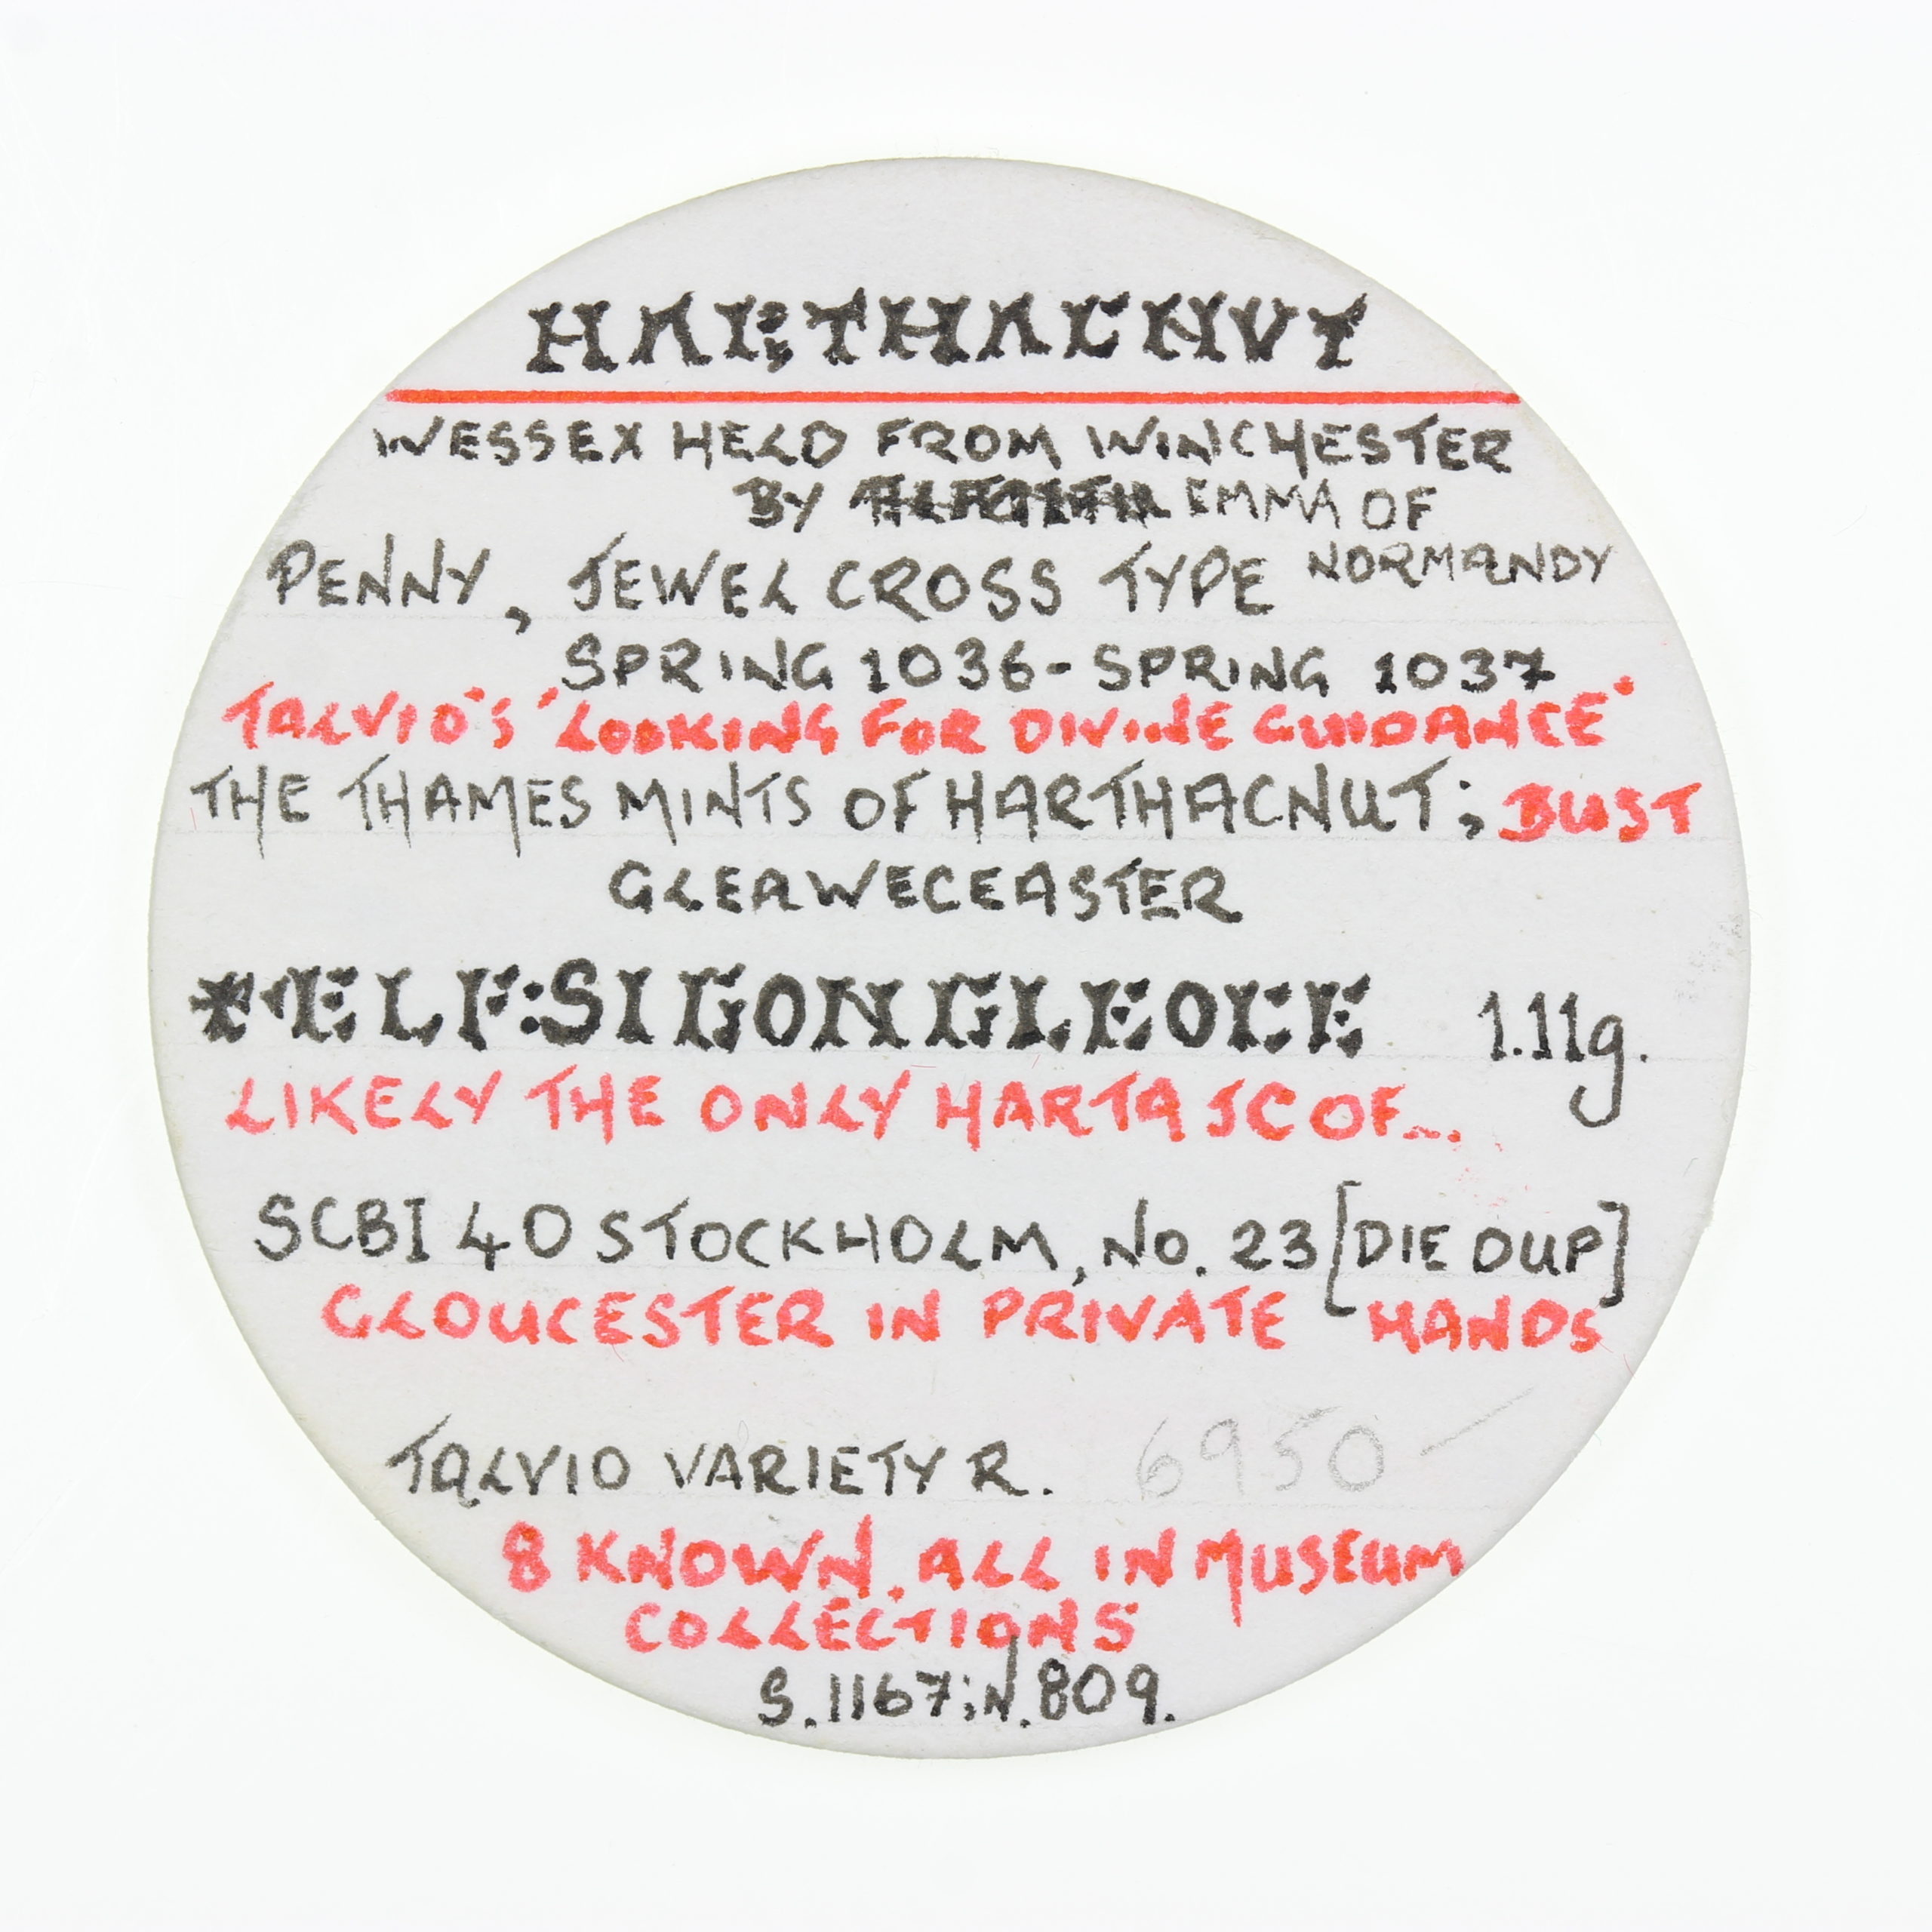 HARTHACNVT
WESSEX HELD FROM WINCHESTER
BY EMMA OF
NORMANDY
PENNY, JEWEL CROSS TYPE
SPRING 1036-SPRING 1037
TALVIO'S 'LOOKING FOR DIVINE GUIDANCE'
THE THAMES MINTS OF HARTHACNUT; BUST
GLEAWECEASTER
+ÆLF:SIGONGLEOCE 1.11g.
LIKELY THE ONLY HARTA JC OF...
SCBI 40 STOCKHOLM, No. 23 [DIE DUP]
GLOUCESTER IN PRIVATE HANDS
TALVIO VARIETY R. 6950 —
8 KNOWN. ALL IN MUSEUM
COLLECTIONS
S.1167; N.809.